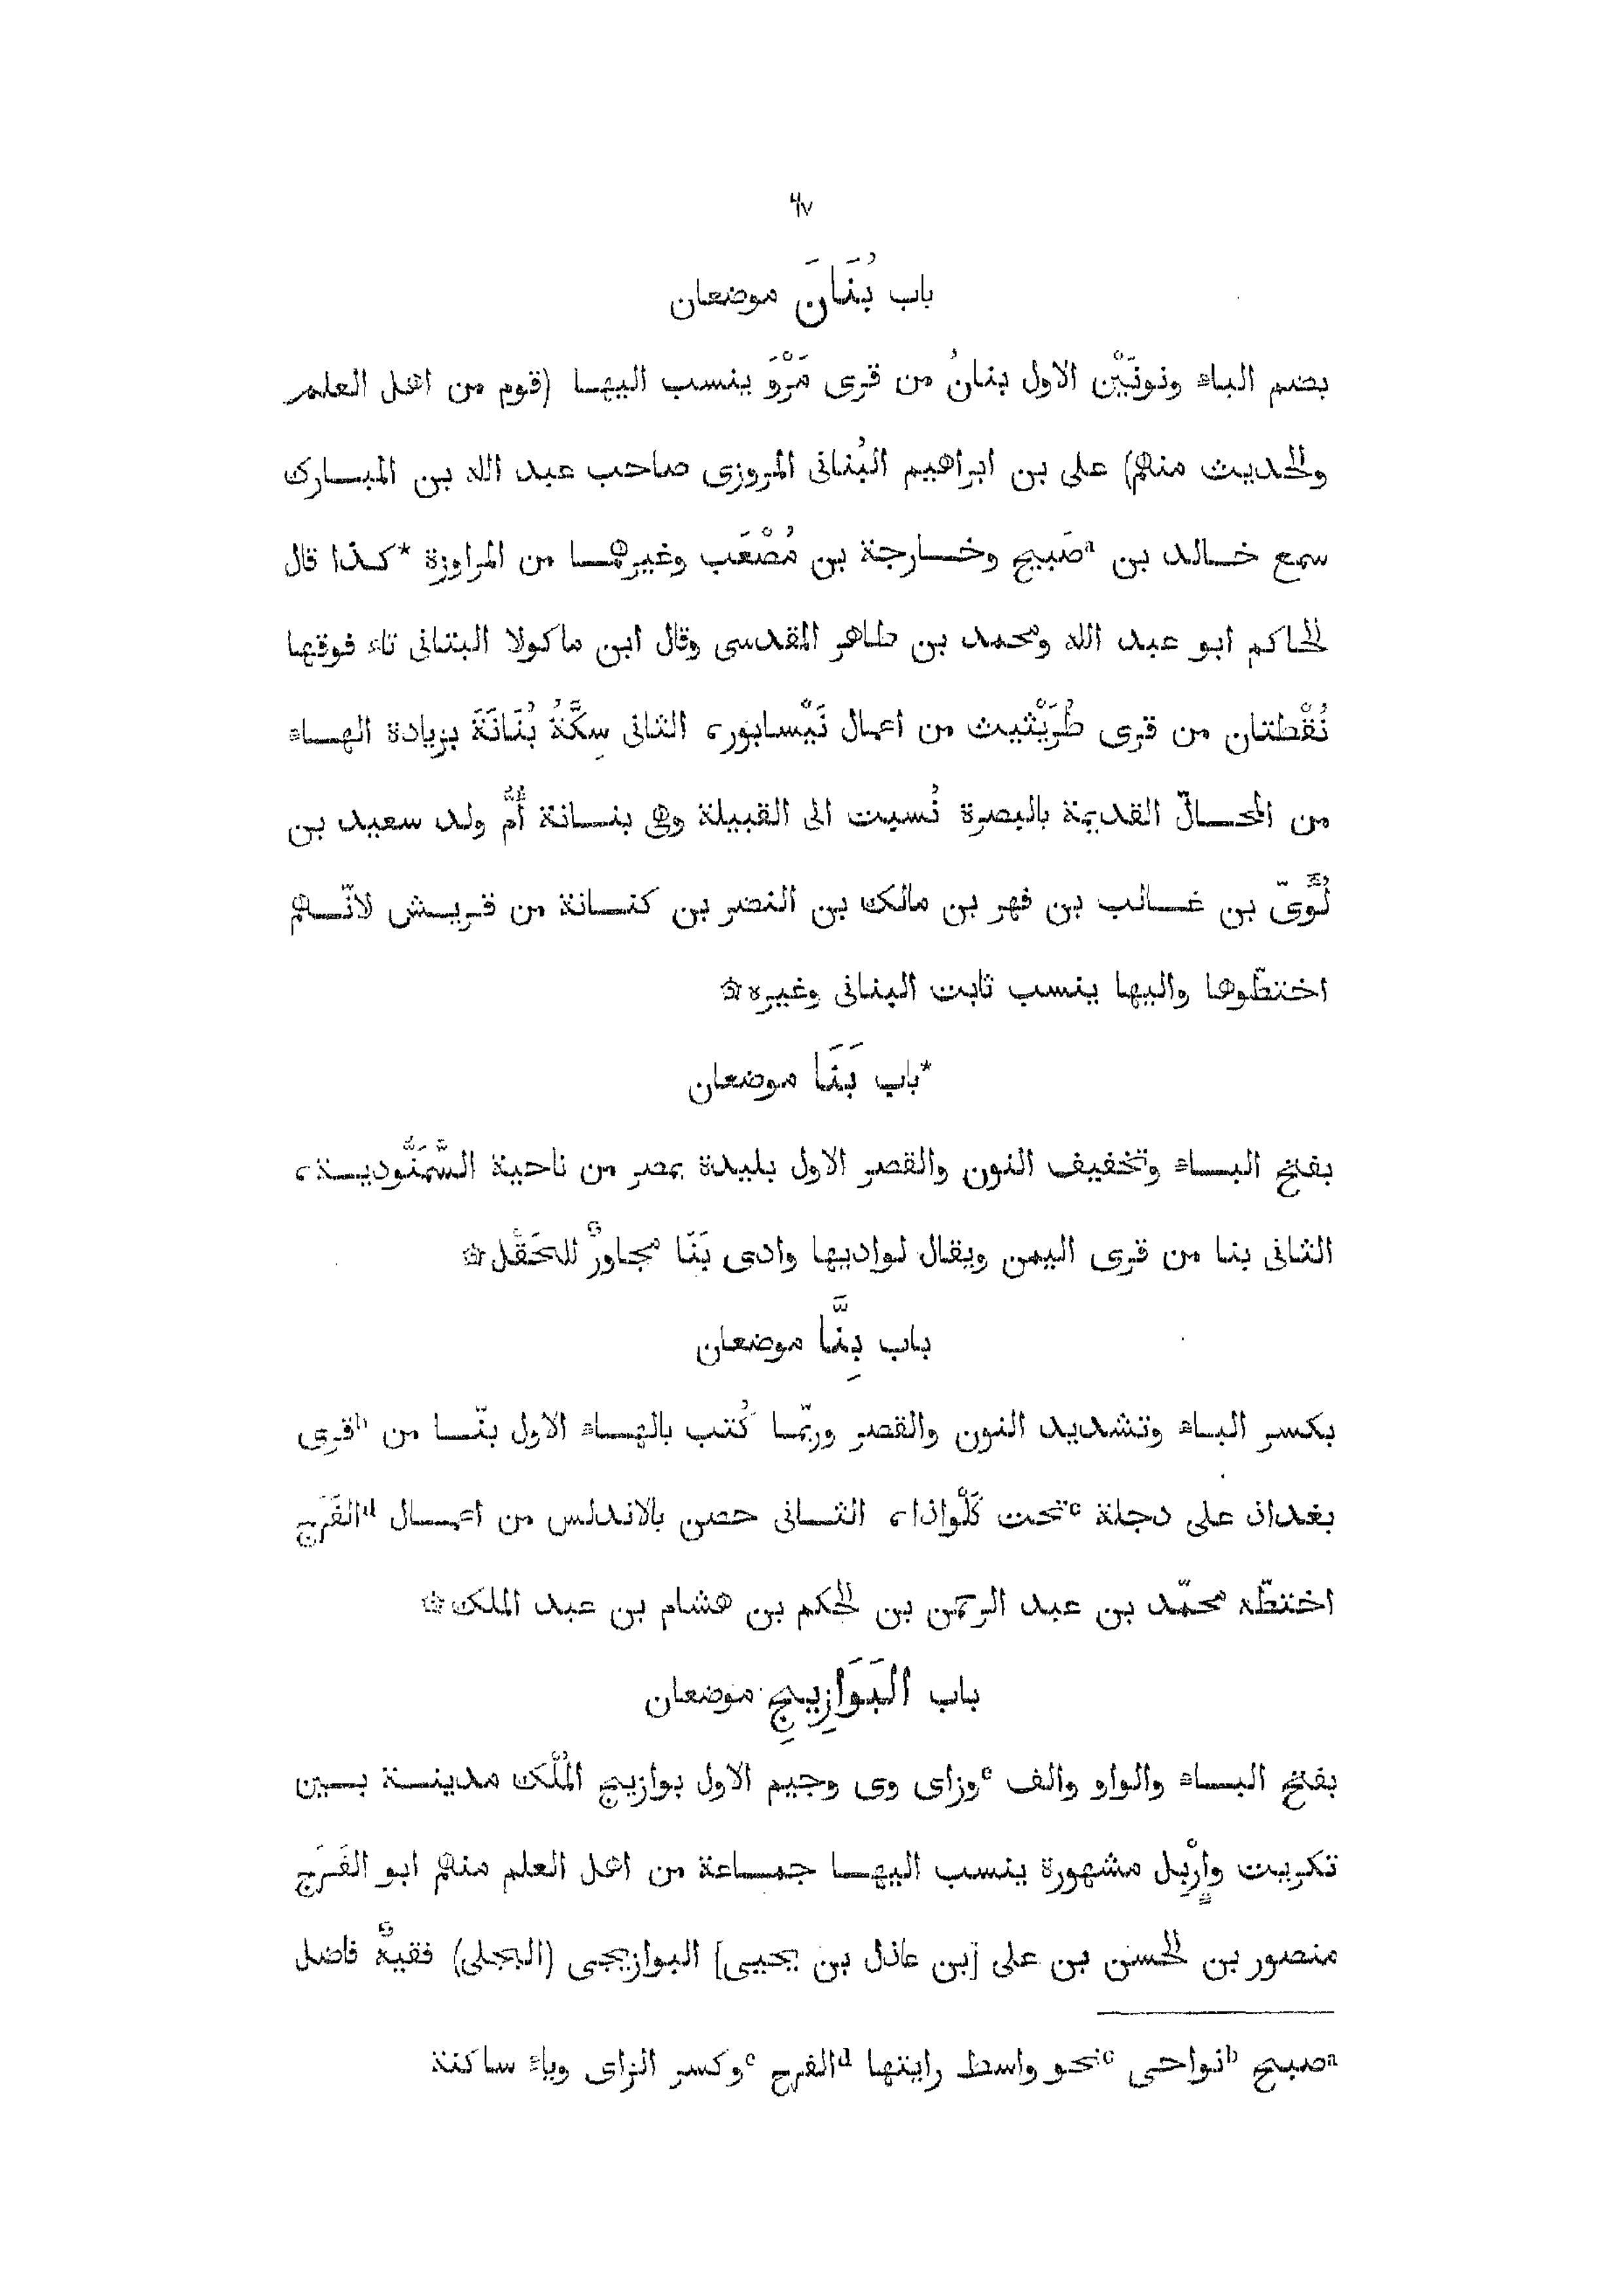 ٦٧
باب بُنَانَ موضعان
بضم الباء ونونَيْن الاول بنانُ من قرى مَرْوَ ينسب اليهـا (قوم من اهل العلم
والحديث منهم) على بن ابراهيم البُنانى المروزى صاحب عبد الله بن المبـارك
سمع خـالد بن ªصَبيح وخـارجة بن مُصْعَب وغيرهمـا من المراوزة *كـذا قال
الحاكم ابو عبد الله ومحمد بن طاهر المقدسى وقال ابن ماكولا البتانى تاء فوقها
نُقْطتان من قرى طُرَيْثيث من اعمال نَيْسابور، الثانى سِكَّةُ بُنَانَةَ بزيادة الهـاء
من المحـالّ القديمة بالبصرة نُسبت الى القبيلة وهى بنـانة أُمُّ ولد سعيد بن
لُوَّىّ بن غـالب بن فهر بن مالك بن النضر بن كنـانة من قريـش لانّـهم
اختطّوها واليها ينسب ثابت البنانى وغيره۞
*باب بَنَا موضعان
بفتح البـاء وتخفيف النون والقصر الاول بليدة بمصر من ناحية السَّمَنُّوديـة،
الثانى بنا من قرى اليمن ويقال لواديها وادى بَنَا مجاورٌ للحَقْل۞
باب بِنَّا موضعان
بكسر البـاء وتشديد النون والقصر وربّمـا كُتب بالهـاء الاول بنّـا من ᵇقرى
بغداد على دجلة ᶜتحت كَلْواذا، الثـانى حصن بالاندلس من اعمـال ᵈالفَرَج
اختطّه محمّد بن عبد الرحمن بن الحكم بن هشام بن عبد الملك۞
باب البَوَازِيجِ موضعان
بفتح البـاء والواو والف ᵉوزاى وى وجيم الاول بوازيج المُلْك مدينـة بـين
تكريت وإرْبِل مشهورة ينسب اليهـا جمـاعة من اهل العلم منهم ابو الفَـرَج
منصور بن الحسن بن على [بن عاذل بن يحيى] البوازيجى (البجلى) فقيهٌ فاضل
ªصبح ᵇنواحى ᶜنحو واسط رايتها ᵈالفرح ᵉوكسر الزاى وياء ساكنة